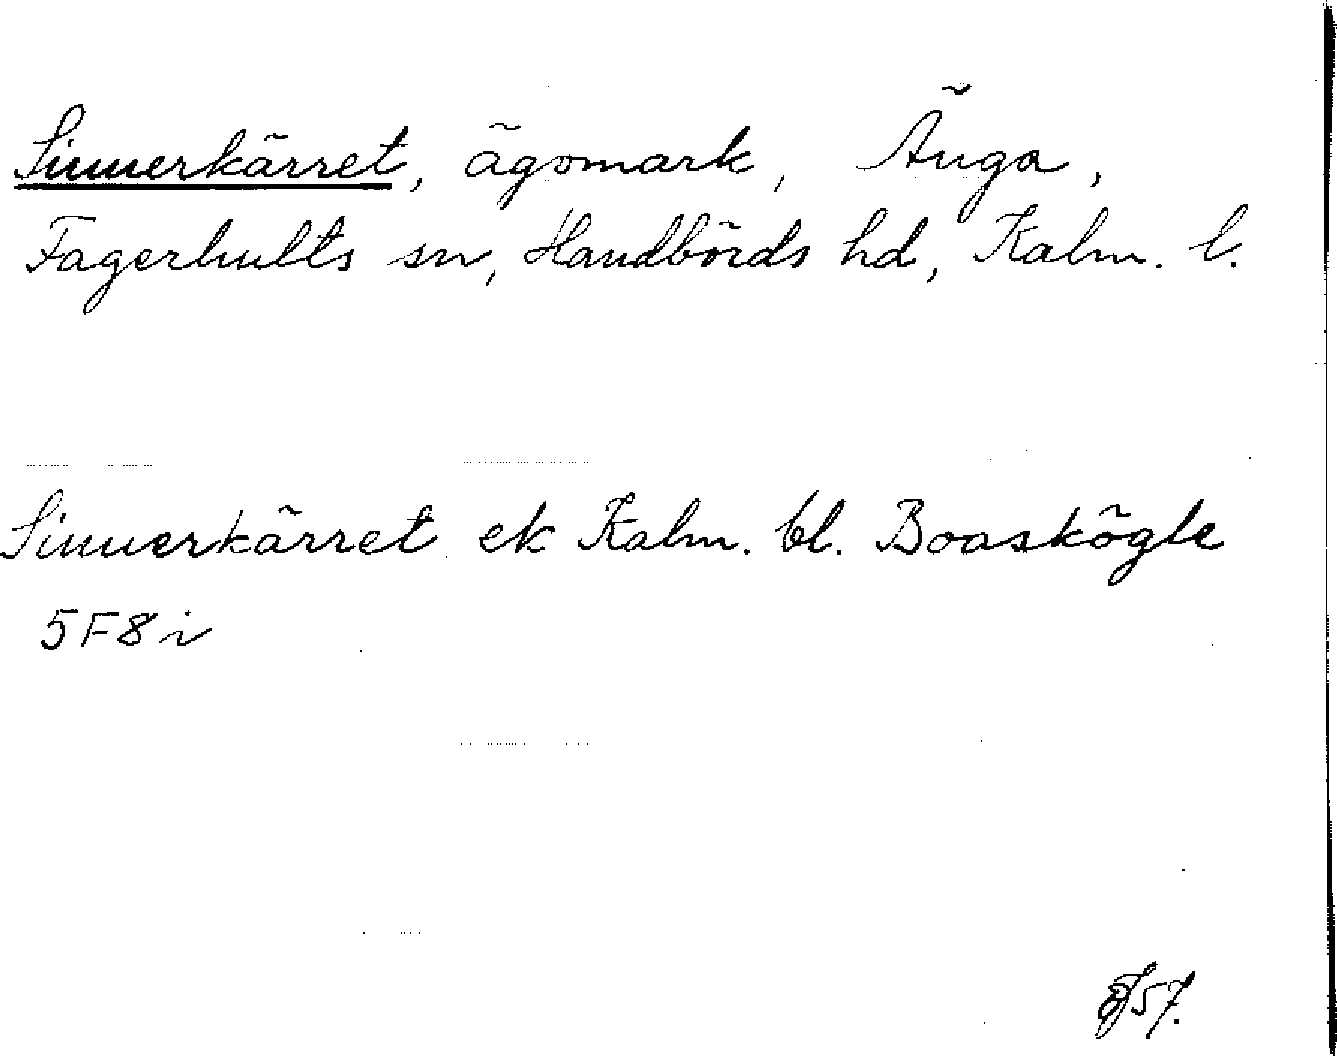 Sinnerkärret, ägomark, Änga,
Fagerhults sn, Handbörds hd, Kalm. l.
Sinnerkärret ek Kalm. bl. Boaskögle
5F8i
57.